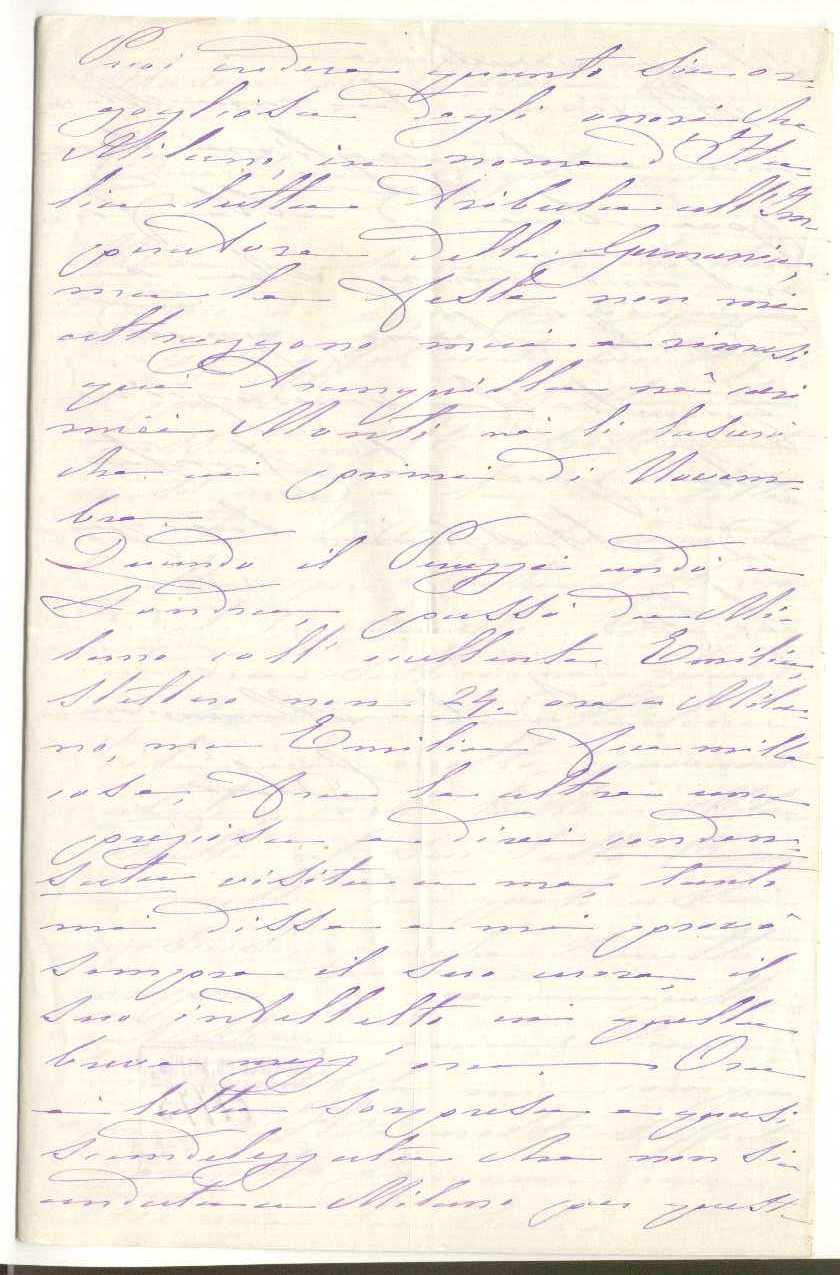 Puoi credere quanto sia or-
gogliosa degli onori che
Milano, in nome d'Ita-
lia tutta tributa all'Im-
peratore della Germania,
ma le feste non mi
attraggono mai e rimasi
qui tranquilla nè cari
miei Monti nè li lascierò
che ai primi di Novem-
bre.
Quando il Peruzzi andò a
Londra, passò da Mi-
lano coll'eccellente Emilia,
stettero non 24. ore a Mila-
no, ma Emilia fra mille
cose, fece le altre una
preziosa e direi conden-
sata visita a me, tanto
mi disse e mi provò
sempre il suo cuore, il
suo intelletto in quella
breve mezz'ora. Ora
è tutta sorpresa e quasi
scandolezzata che non sia
andata a Milano per queste